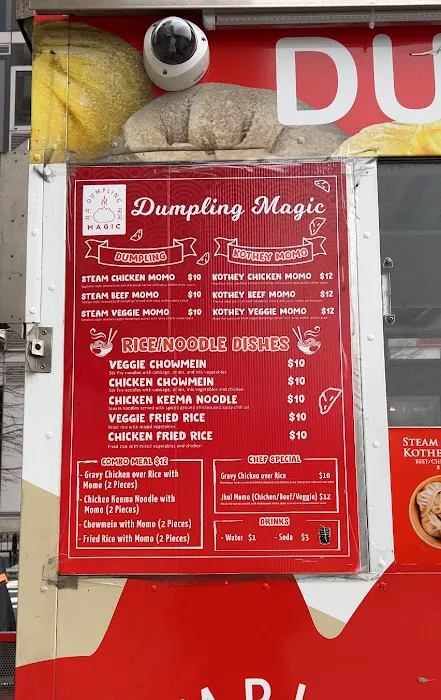 DU
DUMPLING
MAGIC
Dumpling Magic
DUMPLING
STEAM CHICKEN MOMO $10
STEAM BEEF MOMO $10
STEAM VEGGIE MOMO $10
KOTHEY MOMO
KOTHEY CHICKEN MOMO $12
KOTHEY BEEF MOMO $12
KOTHEY VEGGIE MOMO $12
RICE/NOODLE DISHES
VEGGIE CHOWMEIN $10
Stir fry noodles with cabbage, onion, and mix vegetables
CHICKEN CHOWMEIN $10
Stir fry noodles with cabbage, onion, mix vegetables and chicken
CHICKEN KEEMA NOODLE $10
noodles served with spiced ground chicken and spicy chili oil
VEGGIE FRIED RICE $10
Fried rice with mixed vegetables
CHICKEN FRIED RICE $10
Fried rice with mixed vegetables and chicken
COMBO MEAL $12
- Gravy Chicken over Rice with
Momo (2 Pieces)
- Chicken Keema Noodle with
Momo (2 Pieces)
- Chowmein with Momo (2 Pieces)
- Fried Rice with Momo (2 Pieces)
CHEF SPECIAL
Gravy Chicken over Rice $10
Jhol Momo (Chicken/Beef/Veggie) $12
DRINKS
- Water $1 - Soda $3
STEAM
KOTHE
BEEF/CH